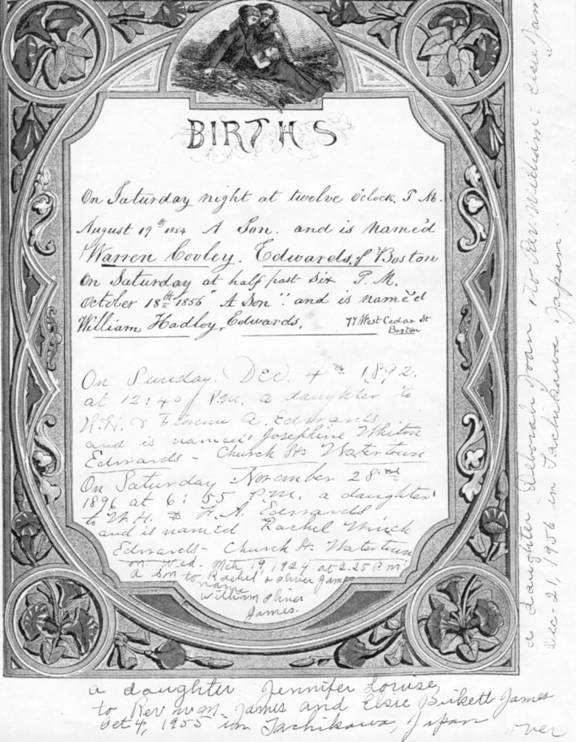 BIRTHS
On Saturday night at twelve o'clock, P. M.
August 19th 1854 A Son. and is name'd
Warren Cooley. Edwards, of Boston
On Saturday at half past Six P. M.
October 18th 1856 "A Son" and is name'd
William Hadley, Edwards. 77 West Cedar St
Boston
On Sunday. Dec. 4th 1892.
at 12:40 P.M. a daughter to
W.H. & A. Edwards
and is named Josephine Whiton
Edwards - Church St. Watertown
On Saturday November 28
1896 at 6:55 P.M. a daughter
to W. H. & F. A. Edwards
and is named Rachel Mirick
Edwards - Church St. Watertown
on Wed. Mch 19, 1924 at 2.25 P.M.
a son to Rachel & Oliver James
name
William Oliver
James.
a daughter Jennifer Louise
to Rev Wm. James and Elsie Birkett James
Oct 4, 1955 in Tachikawa, Japan over
a daughter Deborah Joan to Rev. William & Elsie James
Dec-21, 1956 in Tachikawa Japan